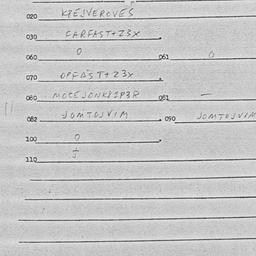 020 KPEJVEROVES
030 FARFAST+Z3X.
060 0 061 0
070 OPFDST+Z3X.
080 081 —
082 JOMTOJVIM. 090 JOMTOJVIM
100 0.
110 J